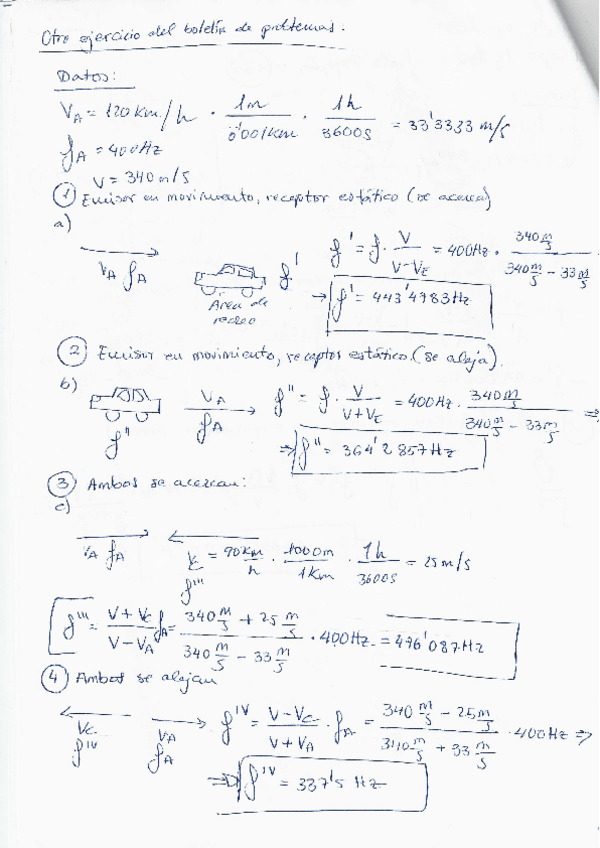 Otro ejercicio del boletín de problemas:
Datos:
V_A = 120 km/h · 1m/0'001km · 1h/3600s = 33'3333 m/s
f_A = 400Hz
V = 340 m/s
① Emisor en movimiento, receptor estático (se acerca)
a)
V_A f_A
f'
Area de recreo
f' = f · V/(V-V_E) = 400Hz · (340 m/s)/(340 m/s - 33 m/s)
→ f' = 443'4783Hz
② Emisor en movimiento, receptor estático. (se aleja).
b)
f''
V_A
f_A
f'' = f · V/(V+V_E) = 400Hz · (340 m/s)/(340 m/s - 33 m/s) ⇒
⇒ f'' = 364'2857Hz
③ Ambos se acercan:
c)
V_A f_A
f'''
= 90km/h · 1000m/1km · 1h/3600s = 25m/s
f''' = (V+V_C)/(V-V_A) f_A = (340 m/s + 25 m/s)/(340 m/s - 33 m/s) · 400Hz = 476'087Hz
④ Ambos se alejan
V_C
f^IV
V_A
f_A
f^IV = (V-V_C)/(V+V_A) · f_A = (340 m/s - 25 m/s)/(340 m/s + 33 m/s) · 400Hz ⇒
⇒ f^IV = 337'5 Hz